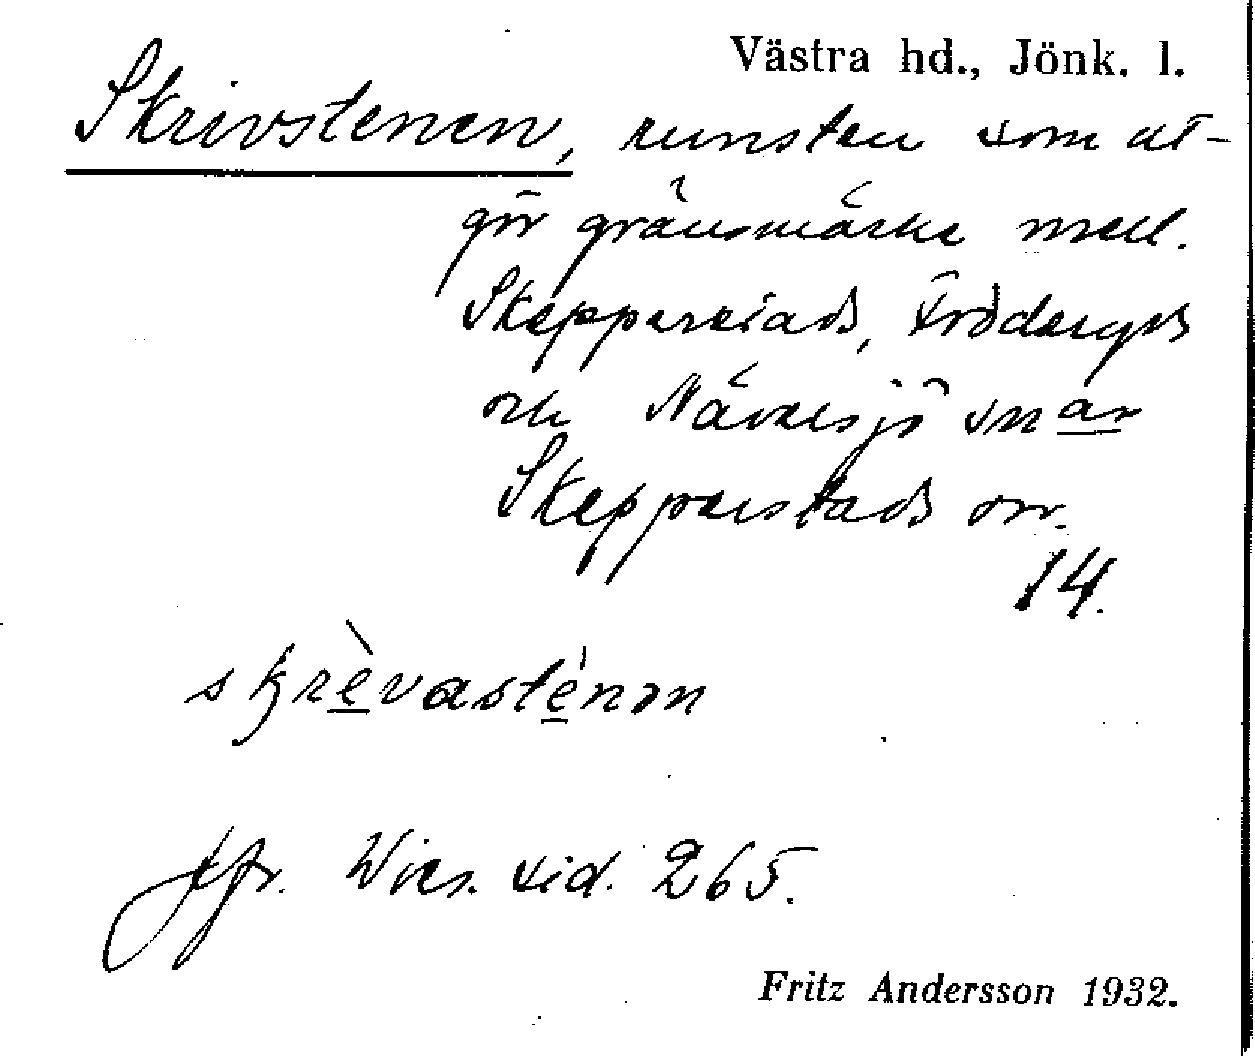 Västra hd., Jönk. l.
Skrivstenen, runsten som ut-
gör gränsmärke mell.
Skepperstads, Fröderyds
och Nävelsjö snar
Skepperstads sn.
14.
skrèvasténən
jfr. Wies. sid. 265.
Fritz Andersson 1932.